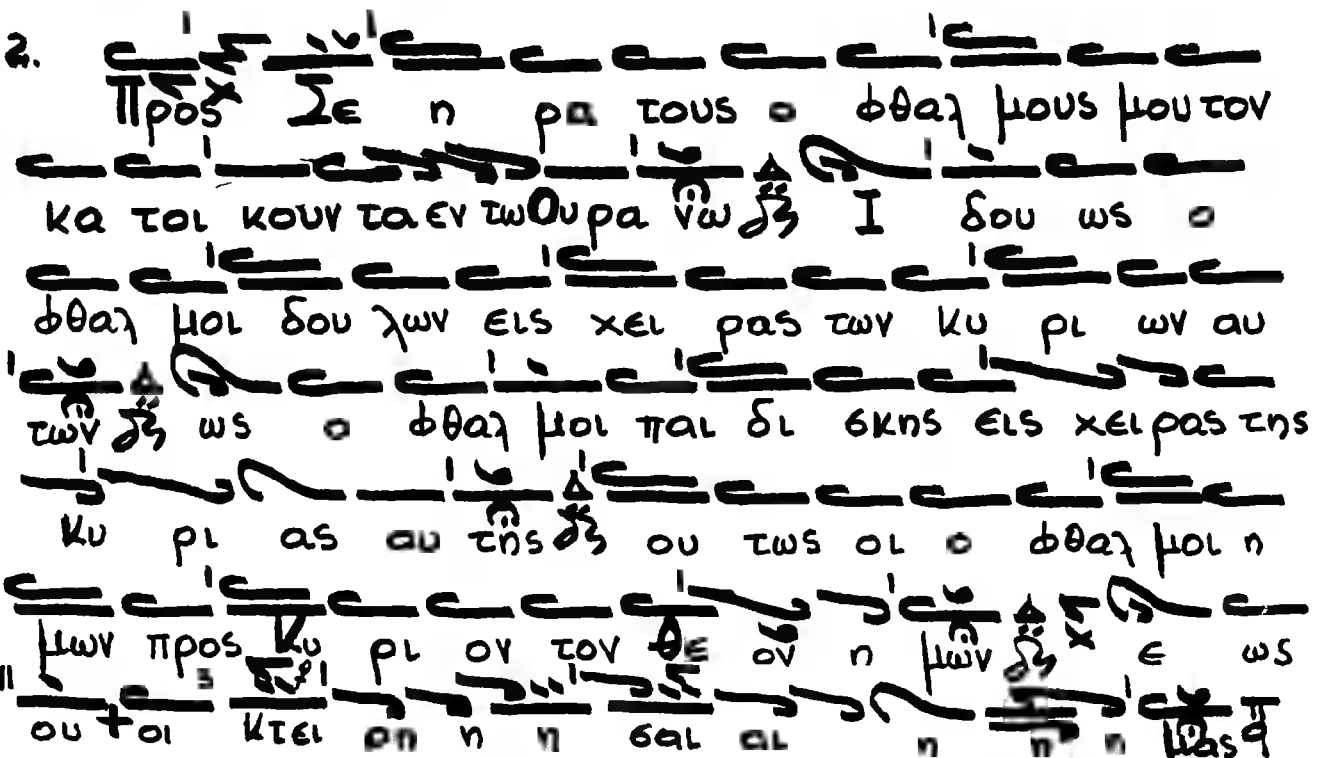 2. Προς Σε η ρα τους ο φθαλ μους μου τον
κα τοι κουν τα εν τω Ου ρα νω Ι δου ως ο
φθαλ μοι δου λων εις χει ρας των κυ ρι ων αυ
των ως ο φθαλ μοι παι δι σκης εις χει ρας της
κυ ρι ας αυ της ου τως οι ο φθαλ μοι η
μων προς Κυ ρι ον τον Θε ον η μων ε ως
ου οι κτει ρη η η σαι αι η η η μας